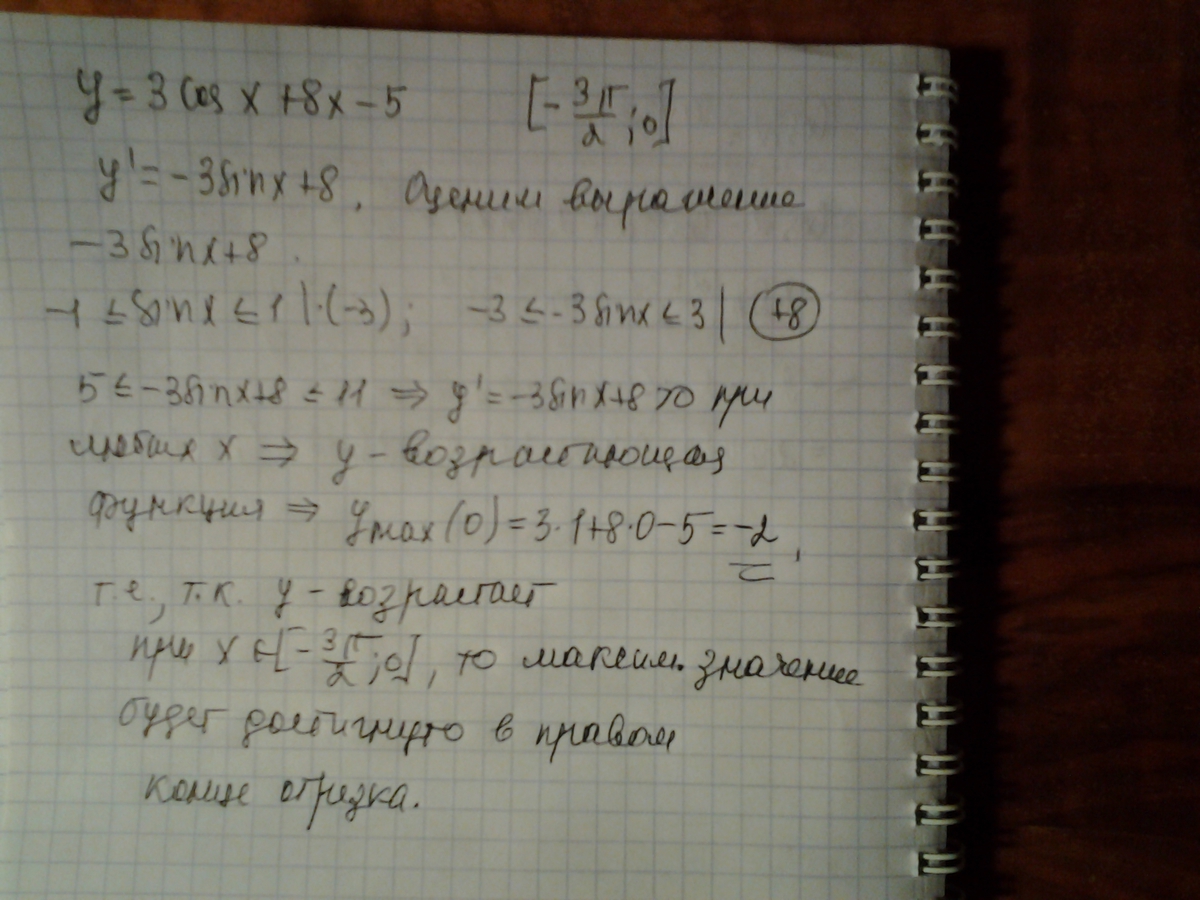 y = 3 cos x + 8x − 5 [−3π/2; 0]
y' = −3 sin x + 8. Оценим выражение
−3 sin x + 8.
−1 ≤ sin x ≤ 1 | ·(−3); −3 ≤ −3 sin x ≤ 3 | +8
5 ≤ −3 sin x + 8 ≤ 11 ⇒ y' = −3 sin x + 8 >0 при
любых x ⇒ y − возрастающая
функция ⇒ y max (0) = 3·1 + 8·0 − 5 = −2,
т.е., т.к. y − возрастает
при x ∈ [−3π/2; 0], то максим. значение
будет достигнуто в правом
конце отрезка.